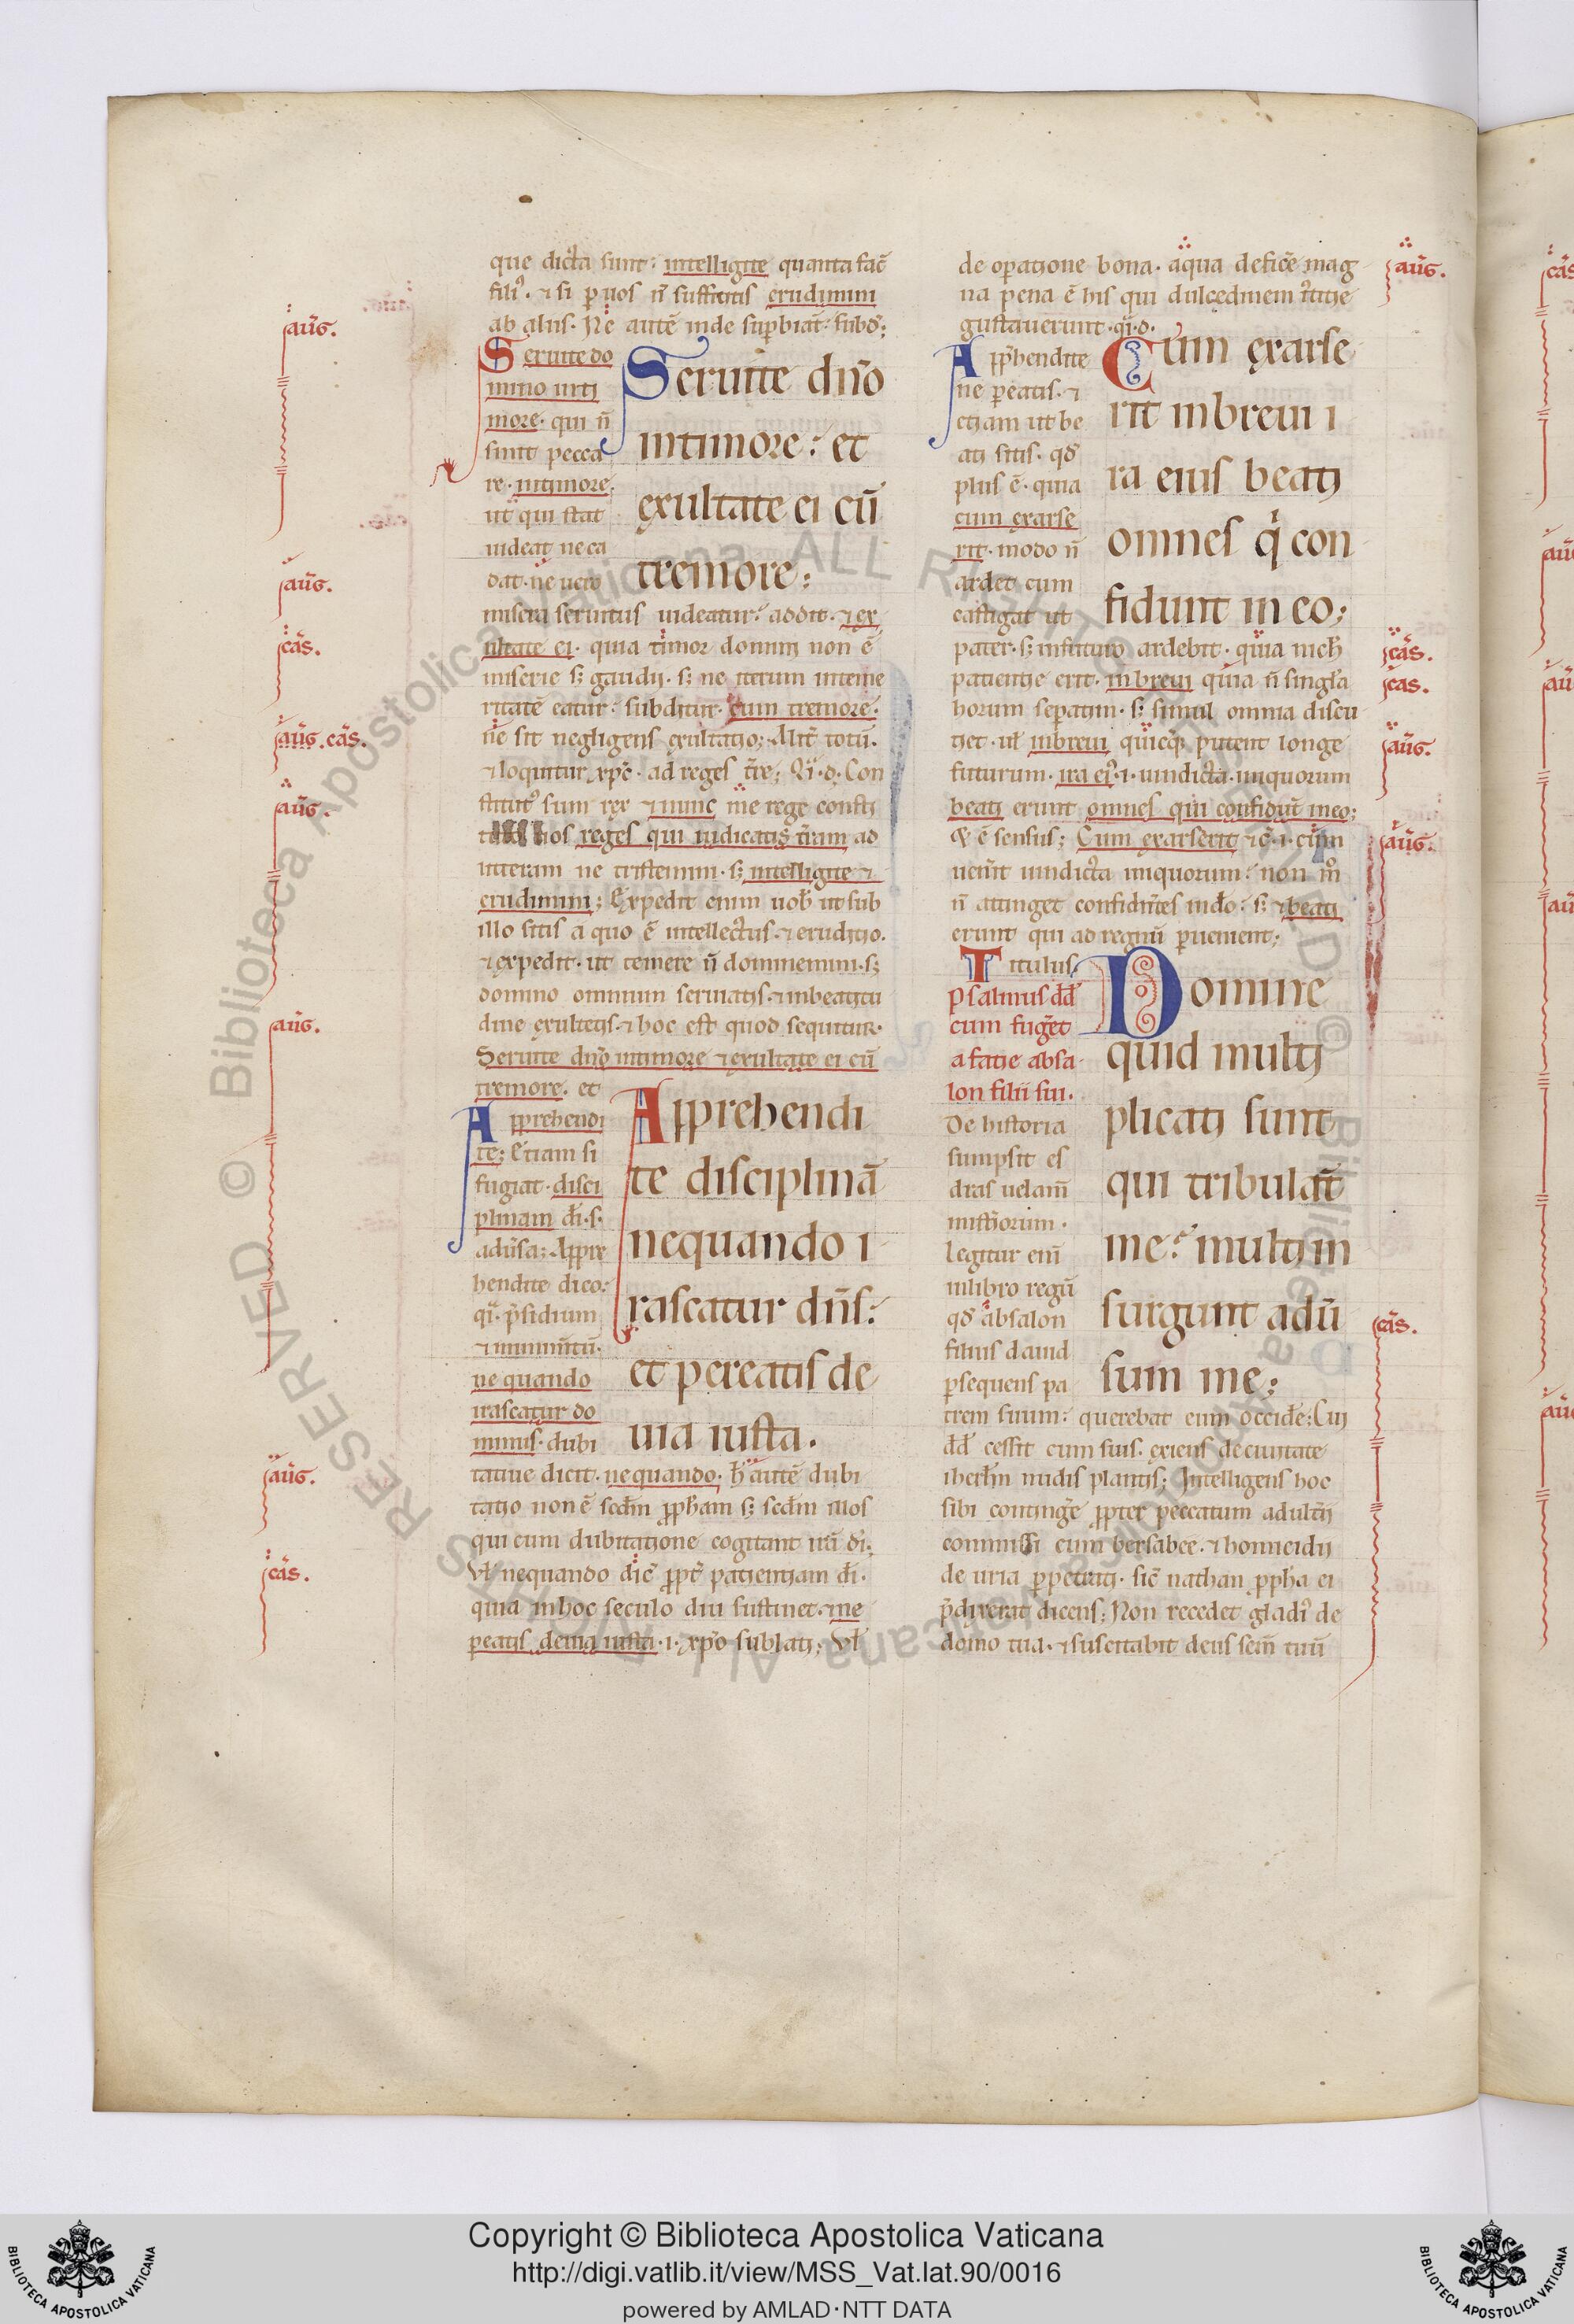 que dicta sunt: intelligite quanta fac̄
fili᾽. ⁊ si p uos n̄ sufficitis erudimini
ab aliis. Ne autē inde supbiāt: subd᾽;
Seruite do
mino in ti
more. qui n̄
sint pecca
re. intimore.
ut qui stat
uideat ne ca
dat. ne uero
Seruite dn̄o
intimore: et
exultate ei cū
tremore:
misera seruitus uideatur: addit. ⁊ ex
ultate ei. quia timor domini non ē
miserie s; gaudii. s; ne iterum inteme
ritatē eatur: subditur. cum tremore.
ne sit negligens exultatio; Alit̄ totū.
⁊ loquitur xp̄c. ad reges t̄re; Q̄i.d. Con
stitut᾽ sum rex ⁊ nunc me rege consti
uos reges qui iudicatis t̄ram ad
interam ne tristemini. s; intelligite ⁊
erudimini; Expedit enim uob̄ ut sub
illo sitis a quo ē intellectus. ⁊ eruditio.
⁊ expedit. ut temere n̄ dominemini. s;
domino omnium seruiatis. ⁊ inbeatitu
dine exultetis. ⁊ hoc est quod sequitur.
Seruite dn̄o intimore ⁊ exultate ei cū
tremore. et
Apprehendi
te; Etiam si
fugiat. disci
plinam d̄i. s.
adūsa; Appre
hendite dico:
q̄i. p̄sidium
⁊ munim̄tū.
ne quando
irascatur do
minus. dubi
Apprehendi
te disciplinā
nequando i
rascatur dn̄s:
et pereatis de
uia iusta.
tatiue dicit. ne quando. h̄ autē dubi
tatio non ē scd̄m pp̄ham s; scd̄m illos
qui cum dubitatione cogitant irā d̄i;
Vl̄ nequando dic̄ ppt̄ patientiam d̄i.
quia inhoc seculo diu sustinet. ⁊ ne
peatis deuia iusta. i. xp̄o sublati; Vl̄
de opatione bona. aqua deficē mag
na pena ē his qui dulcedinem iustitie
gustauerunt. q̄i.d.
App̄hendite
ne peatis. ⁊
etiam ut be
ati sitis. qd̄
plus ē. quia
cum exarse
rit. modo n̄
ardet cum
castigat ut
Cum exarse
rit inbreui i
ra eius beati
omnes qi con
fidunt in eo;
pater. s; infuturo ardebit. quia nich̄
patientie erit. inbreui quia n̄ singl̄a
horum sepatim. s; simul omnia discu
tiet. ul̄ inbreui quicq; putent longe
futurum. ira ei᾽. i. uindicta iniquorum
beati erunt omnes qui confidūt ineo;
⁊ ē sensus; Cum exarserit ⁊c̄. i. cum
uen̄it uindicta iniquorum: non m̊
n̄ attinget confidn̄tes indo: s; ⁊ beati
erunt qui ad regnū puenient;
Titulus
Psalmus dd̄
cum fuḡet
a facie absa
lon filii sui.
De historia
sumpsit es
dras uelam̄
mist̄iorum.
Legitur eni̅
inlibro regū
qd̄ absalon
filius dauid
psequens pa
Domine
quid multi
plicati sunt
qui tribulāt
me: multi in
surgunt adū
sum me;
trem suum: querebat eum occide; Cui
dd̄ cessit cum suis. exiens deciuitate
ihertm̄ nudis plantis; Intelligens hoc
sibi contingē ppter peccatum adult̄ii
commissi cum bersabee. ⁊ homicidii
de uria ppetrati. sic̄ nathan pp̄ha ei
p̄dixerat dicens; Non recedet gladi᾽ de
domo tua. ⁊ suscitabit deus sem̄ tuū
aūg.
aūg.
cās.
aūg. cās.
aūg.
aūg.
aūg.
cās.
aūg.
cās.
cās.
aūg.
aūg.
cās.
© Biblioteca Apostolica Vaticana ALL RIGHTS RESERVED
Copyright © Biblioteca Apostolica Vaticana
http://digi.vatlib.it/view/MSS_Vat.lat.90/0016
powered by AMLAD·NTT DATA
BIBLIOTECA APOSTOLICA VATICANA
BIBLIOTECA APOSTOLICA VATICANA